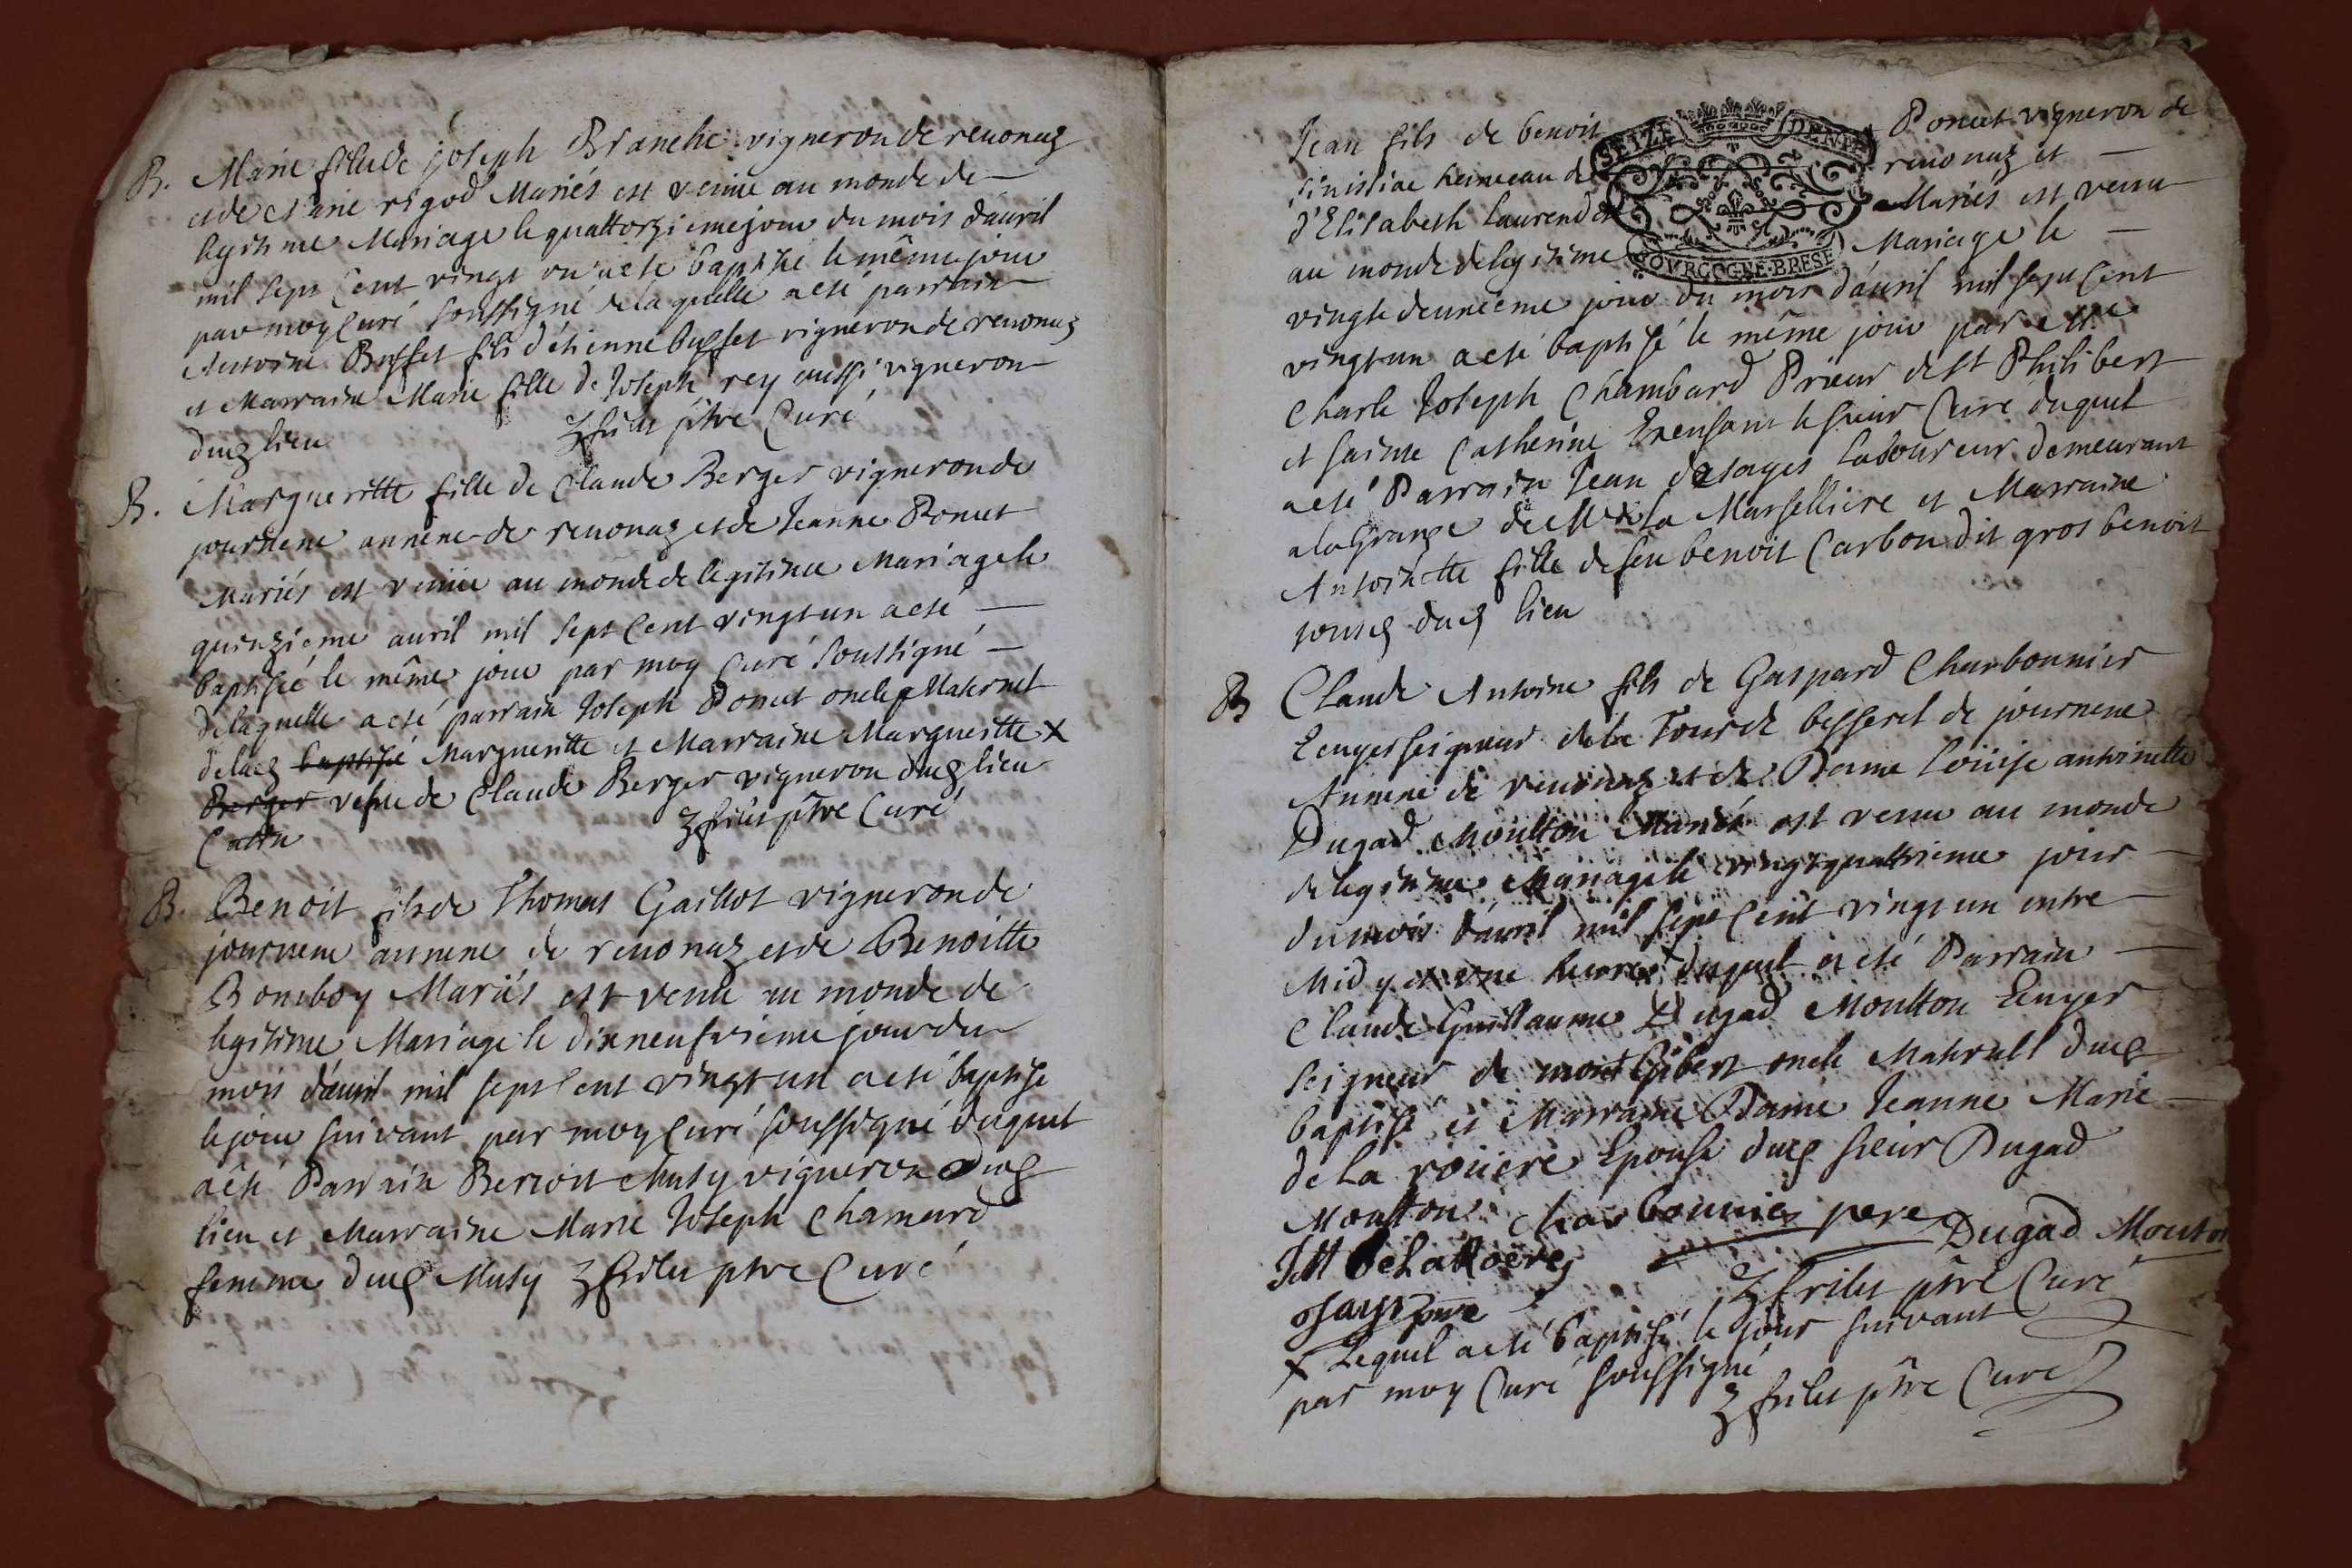 B. Marie fille de joseph Branche vigneron de reuonaz
et de Marie rigod Mariés est venüe au monde de
legitime Mariage le quattorzieme jour du mois d'auril
mil sept Cent vingt un a eté baptisée le même jour
par moy Curé soussigné de laquelle a eté parrain
Antoine Buffet fils d'étienne buffet vigneron de reuonaz
et Marraine Marie fille de Joseph rey aussi vigneron
dud lieu ptre Curé
B. Margueritte fille de Claude Berger vigneron de
journene annexe de reuonaz et de Jeanne Ponut
Mariés est venüe au monde de legitime Mariage le
quinzieme auril mil sept Cent vingt un a eté
baptisée le même jour par moy Curé soussigné
de laquelle a eté parrain Joseph Ponut oncle Maternel
de lad baptisée Marguerite et Marraine Marguerite X
Berger vefue de Claude Berger vigneron dud lieu
Cattin ptre Curé
B. Benoit fils de Thomas Gaillot vigneron de
journene annexe de reuonaz et de Benoitte
Bomboy Mariés est venu au monde de
legitime Mariage le dixneufvieme jour du
mois d'auril mil sept Cent vingt un a eté baptisé
le jour suivant par moy Curé soussigné duquel
a eté Parrain Benoit Musy vigneron dud
lieu et Marraine Marie Joseph Chamard
femme dud Musy ptre Curé
SEIZE DENIE
BOVRGOGNE·BRESE
Jean fils de benoit Ponut vigneron de
hameau de reuonaz et
d'Elisabeth Laurend Mariés est venu
au monde de legitime Mariage le
vingtdeuxieme jour du mois d'auril mil sept Cent
vingt un a eté baptisé le même jour par Mre
Charle Joseph Chambard Prieur de St Philibert
et sainte Catherine Excusant le sieur Curé duquel
a eté Parrain Jean desages laboureur demeurant
a la Grange de Mr de la Marselliere et Marraine
Antoinette fille de feu benoit Carbon dit gros benoit
tousd dud lieu
B Claude Antoine fils de Gaspard Charbonnier
Ecuyer seigneur de la Tour de besserel de journene
Annexe de reuonaz et de Dame Loüise antoinette
Dugad Moulton Mariés est venu au monde
de legitime Mariage le vingtquattrieme jour
du mois d'auril mil sept Cent vingt un entre
Midy et une heures X duquel a eté Parrain
Claude Guillaume Dugad Moulton Ecuyer
seigneur de montGibert oncle Maternell dud
baptisé et Marraine Dame Jeanne Marie
de La roüere Epouse dud sieur Dugad
Moulton Charbonnier pere Dugad Mouton
JM De LaRoere
ptre Curé
X Lequel a eté baptisé le jour suivant
par moy Curé soussigné
ptre Curé